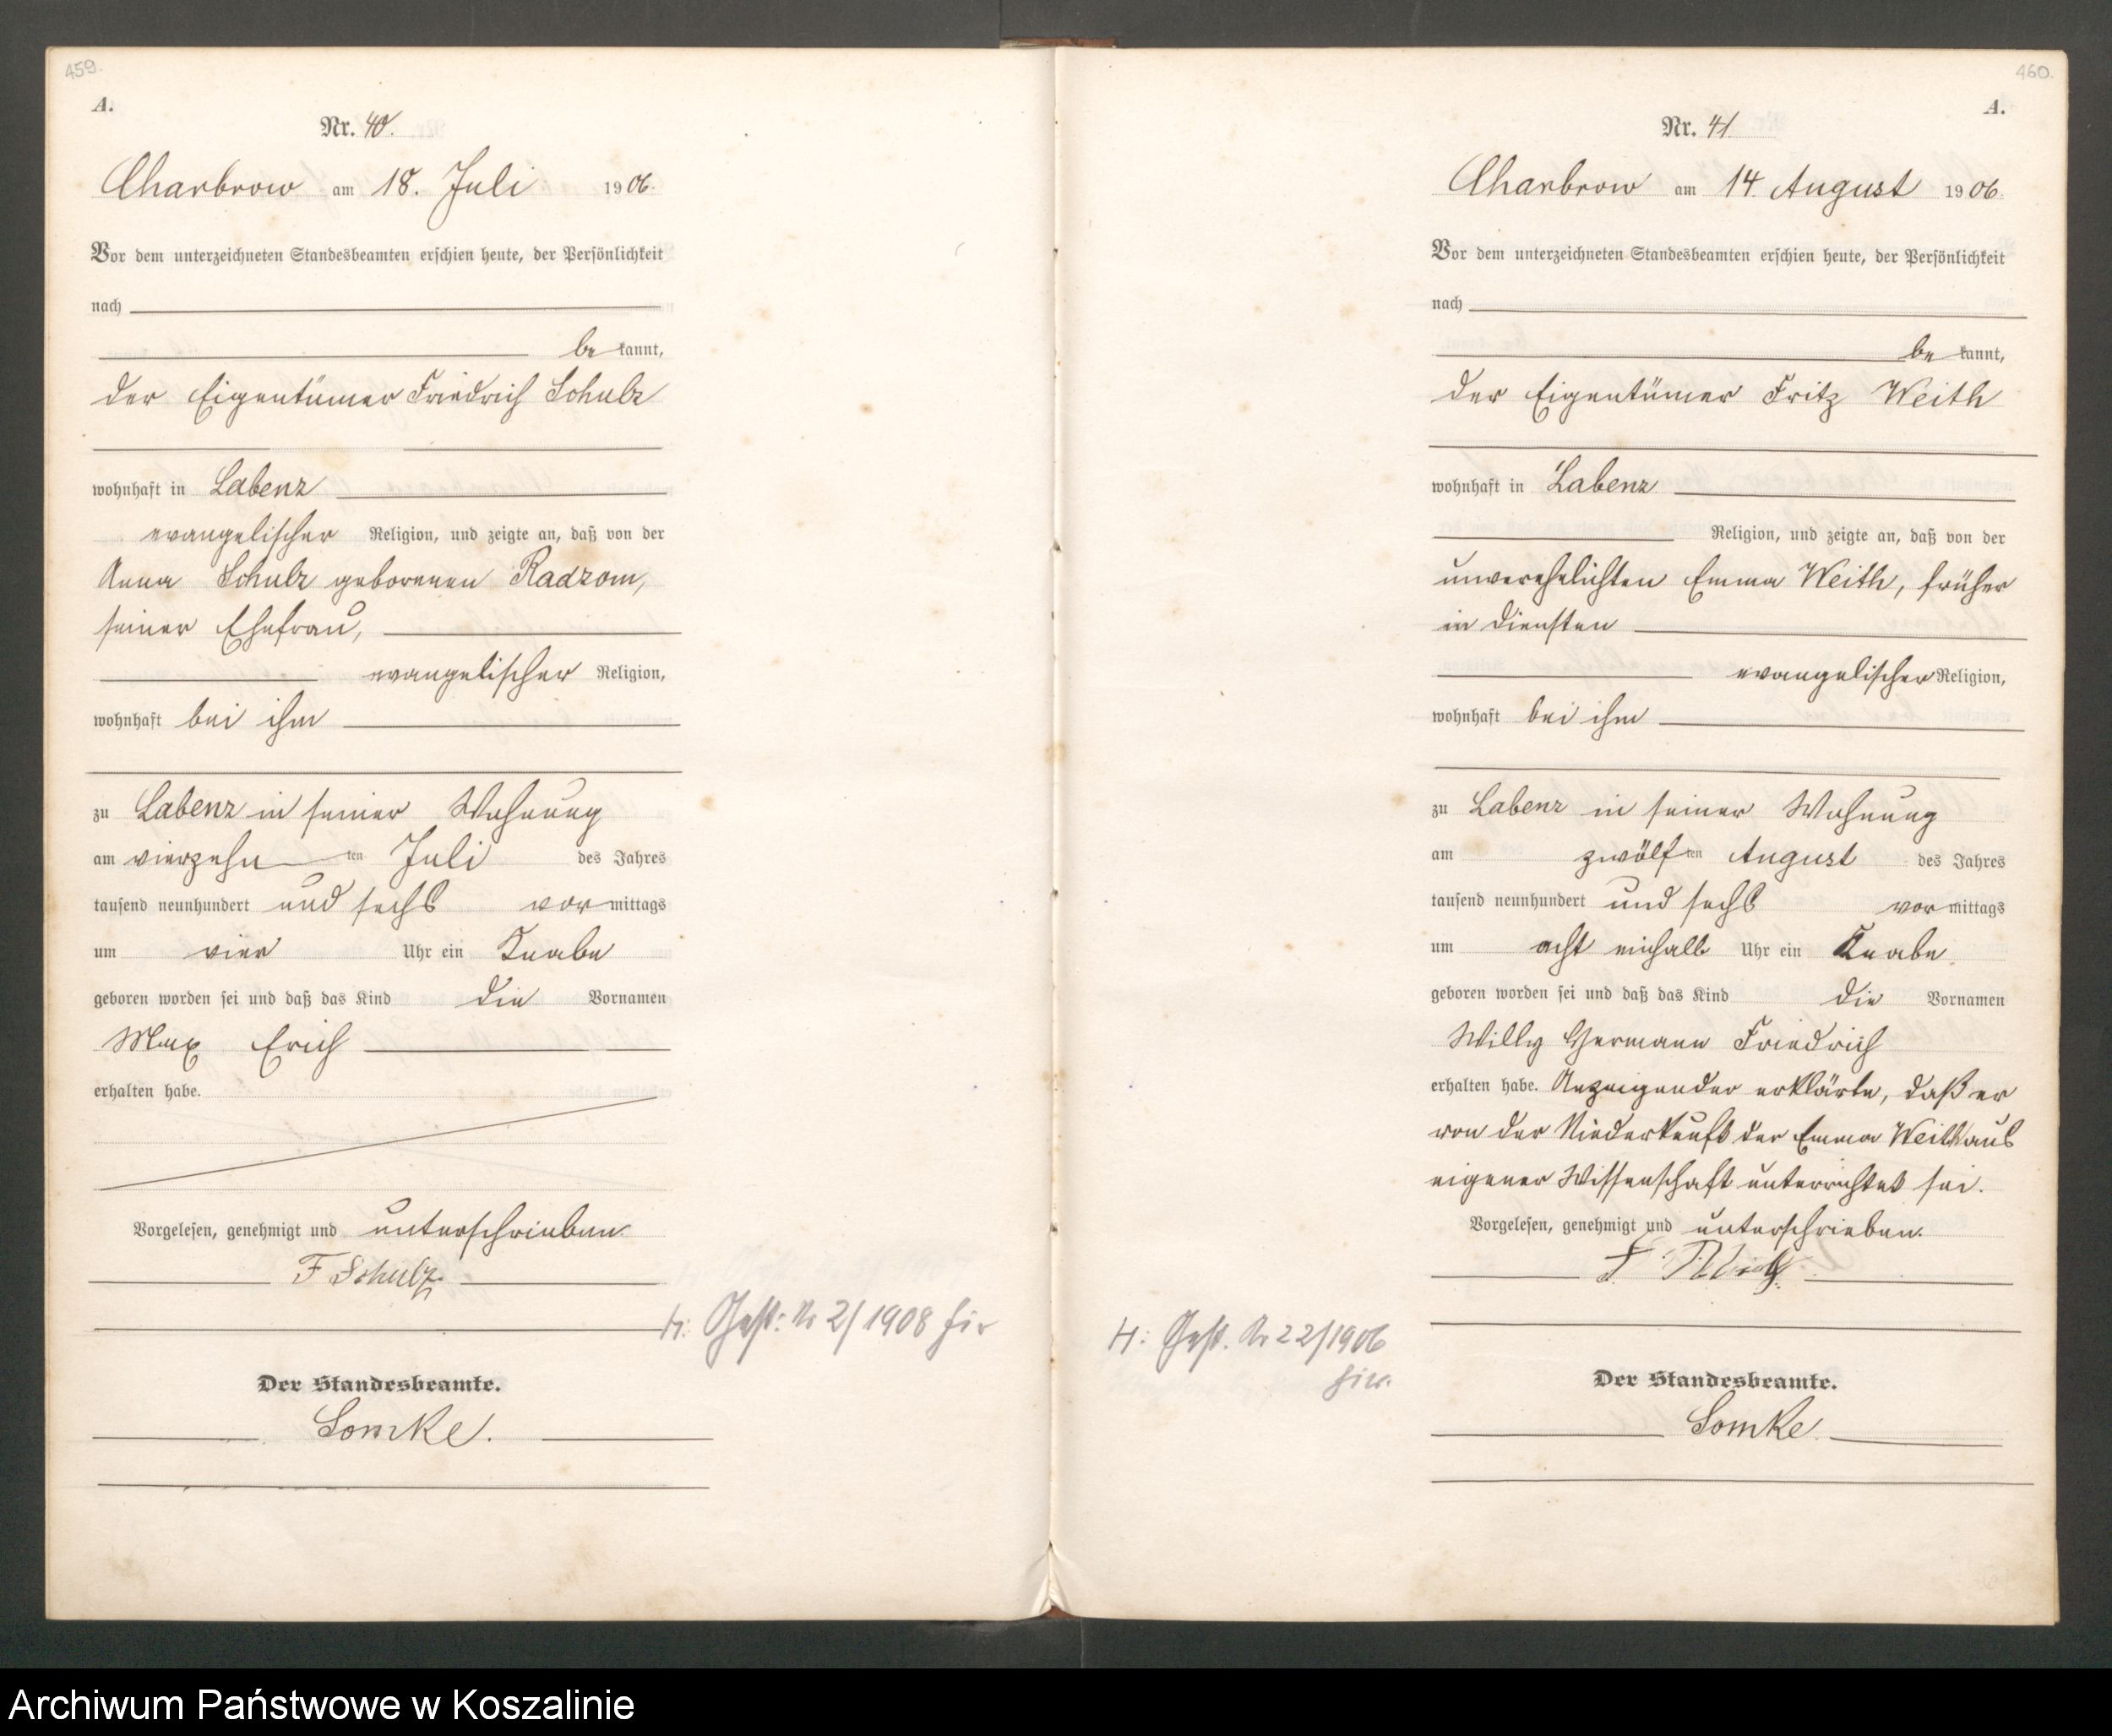 459.
A.
Nr. 40.
Charbrow am 18. Juli 1906.
Vor dem unterzeichneten Standesbeamten erschien heute, der Persönlichkeit
nach
be kannt,
der Eigentümer Friedrich Schulz
wohnhaft in Labenz
evangelischer Religion, und zeigte an, daß von der
Anna Schulz geborenen Radzom,
seiner Ehefrau,
evangelischer Religion,
wohnhaft bei ihm
zu Labenz in seiner Wohnung
am vierzehn ten Juli des Jahres
tausend neunhundert und sechs vor mittags
um vier Uhr ein Knabe
geboren worden sei und daß das Kind die Vornamen
Max Erich
erhalten habe.
Vorgelesen, genehmigt und unterschrieben.
F Schulz.
H: Gest: Nr 2/1908 hier
Der Standesbeamte.
Lomke.
460.
A.
Nr. 41
Charbrow am 14. August 1906.
Vor dem unterzeichneten Standesbeamten erschien heute, der Persönlichkeit
nach
be kannt,
der Eigentümer Fritz Weith
wohnhaft in Labenz
Religion, und zeigte an, daß von der
unverehelichten Emma Weith, früher
in Diensten
evangelischer Religion,
wohnhaft bei ihm
zu Labenz in seiner Wohnung
am zwölf ten August des Jahres
tausend neunhundert und sechs vor mittags
um acht einhalb Uhr ein Knabe
geboren worden sei und daß das Kind die Vornamen
Willy Hermann Friedrich
erhalten habe. Anzeigender erklärte, daß er
von der Niederkunft der Emma Weith aus
eigener Wissenschaft unterrichtet sei.
Vorgelesen, genehmigt und unterschrieben.
F.
H: Gest. Nr 22/1906
hier.
Der Standesbeamte.
Lomke.
Archiwum Państwowe w Koszalinie